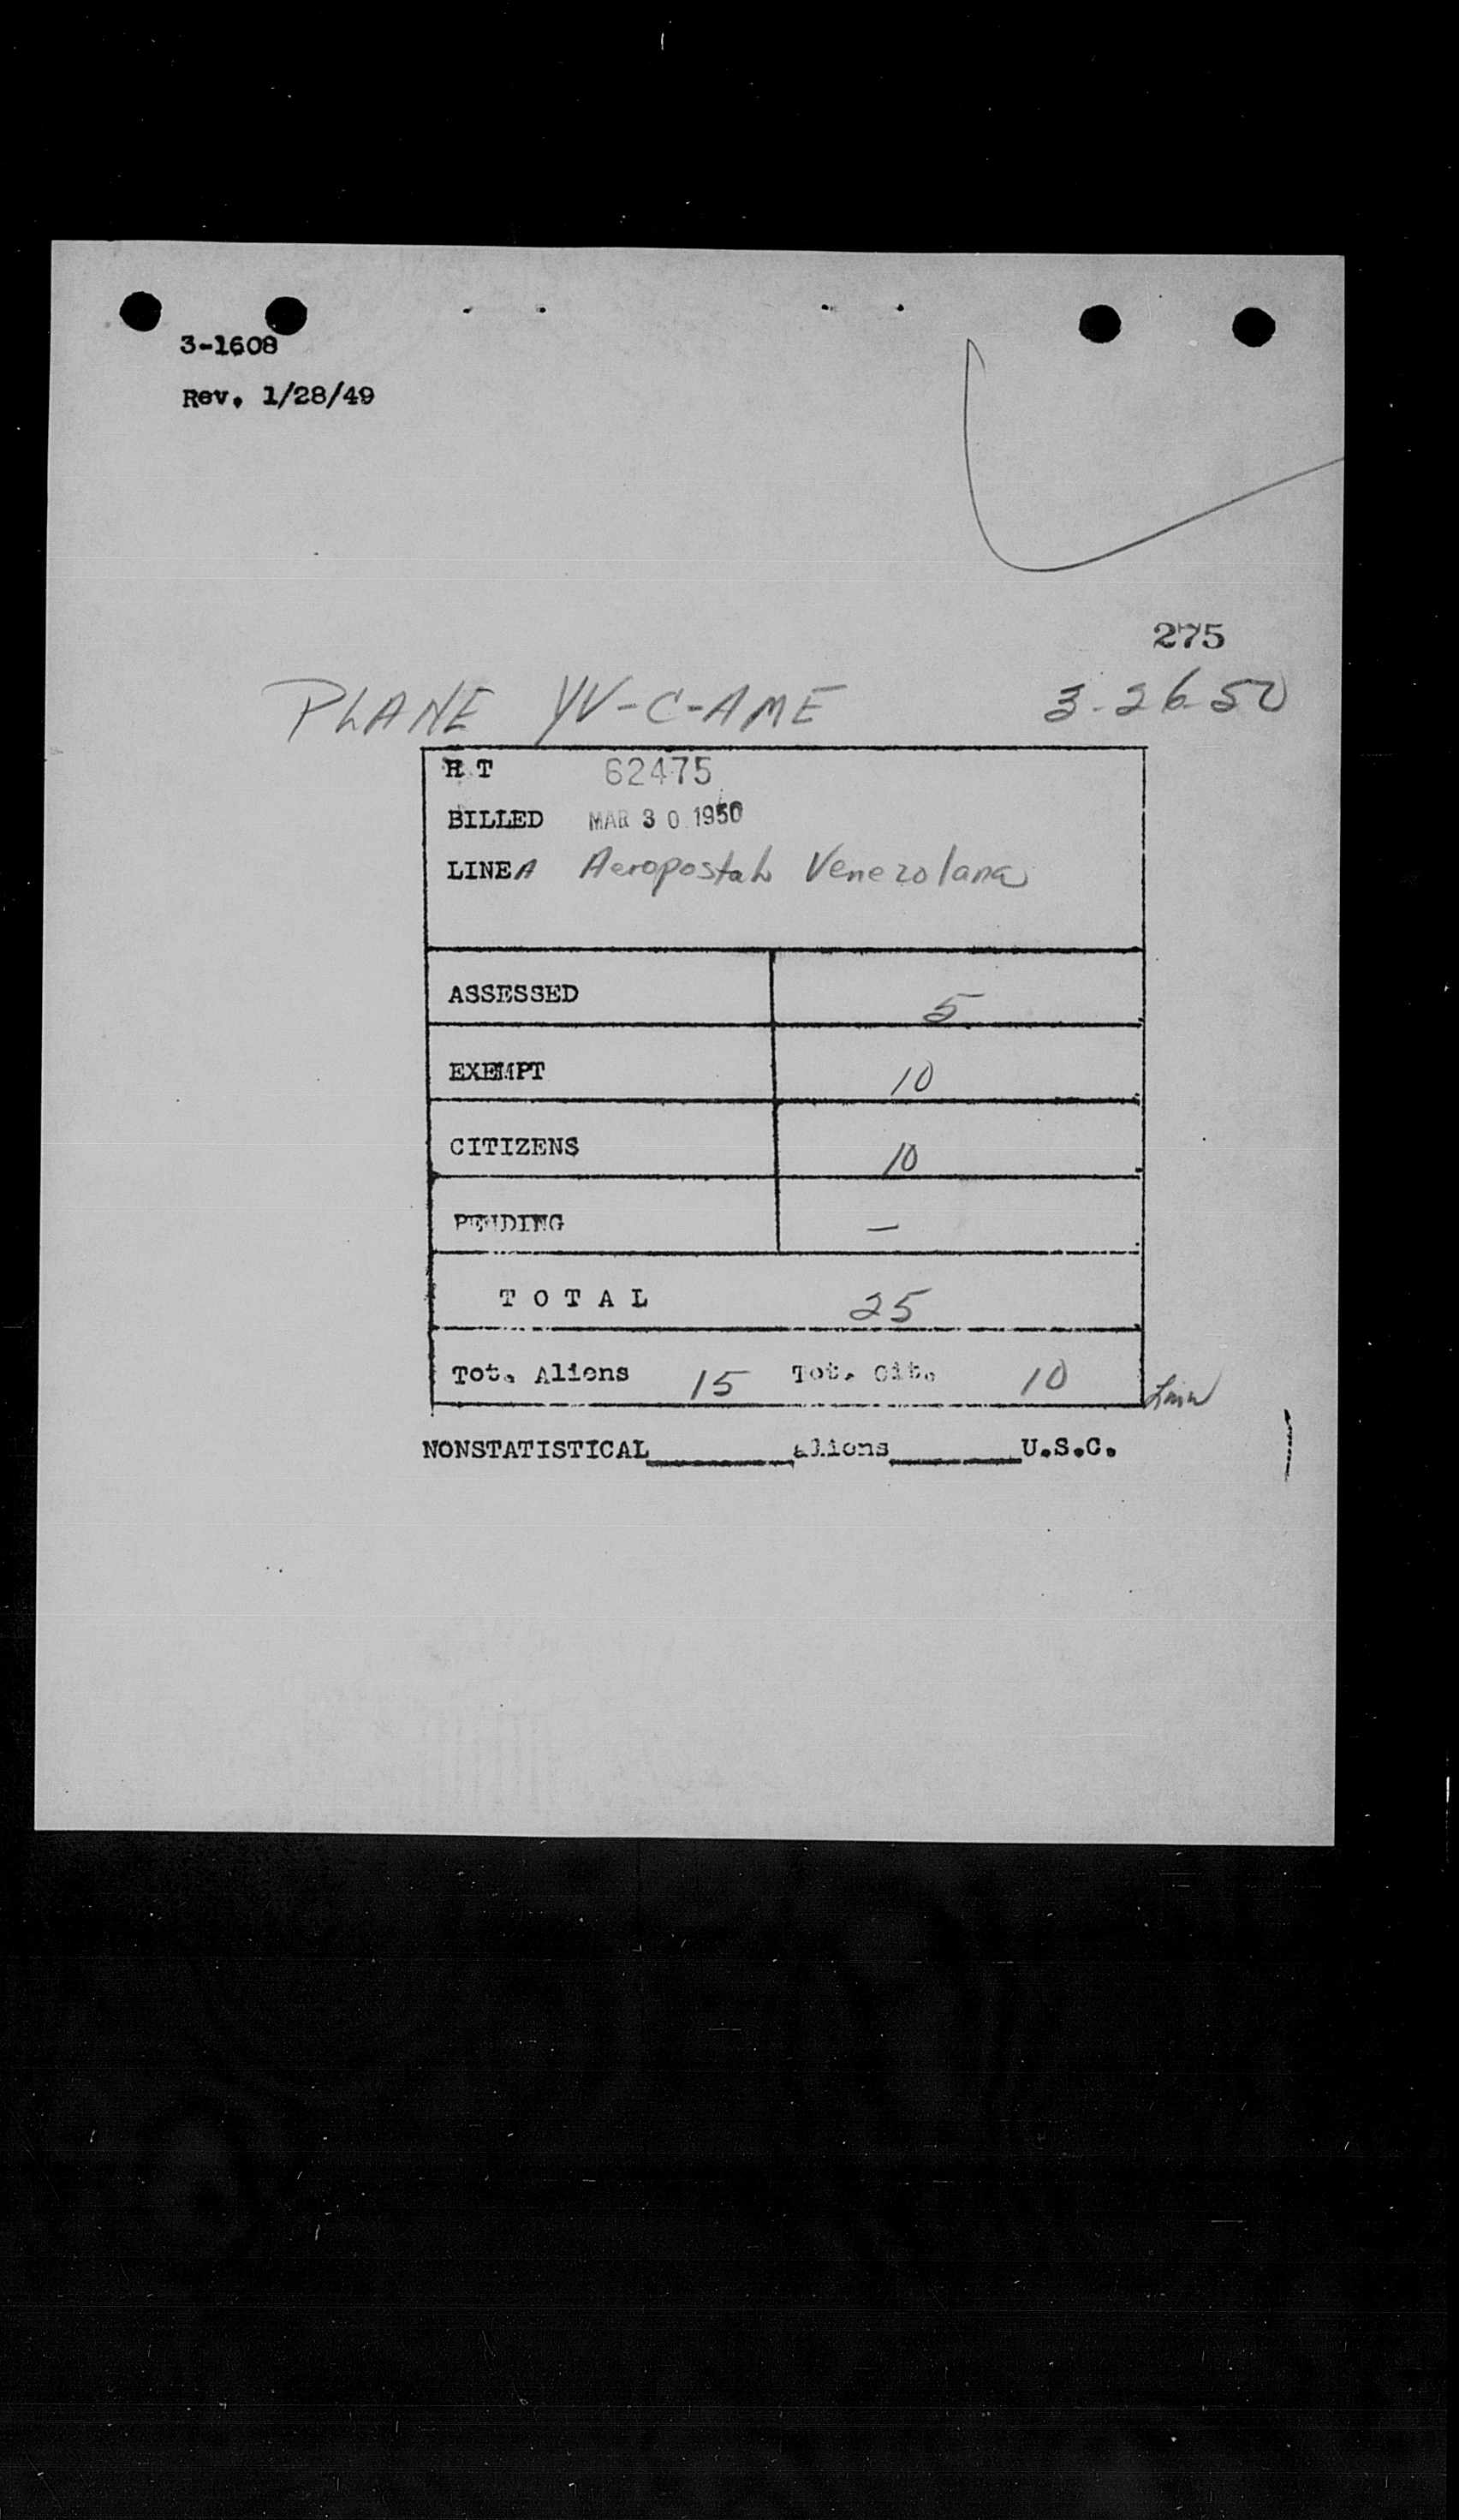 3-1608
Rev. 1/28/49
275
PLANE YV-C-AME 3-26-50
H T 62475
BILLED MAR 30 1950
LINEA Aeropostal Venezolana
ASSESSED 5
EXEMPT 10
CITIZENS 10
PENDING —
TOTAL 25
Tot. Aliens 15 Tot. Cit. 10
NONSTATISTICAL________aliens________U.S.C.